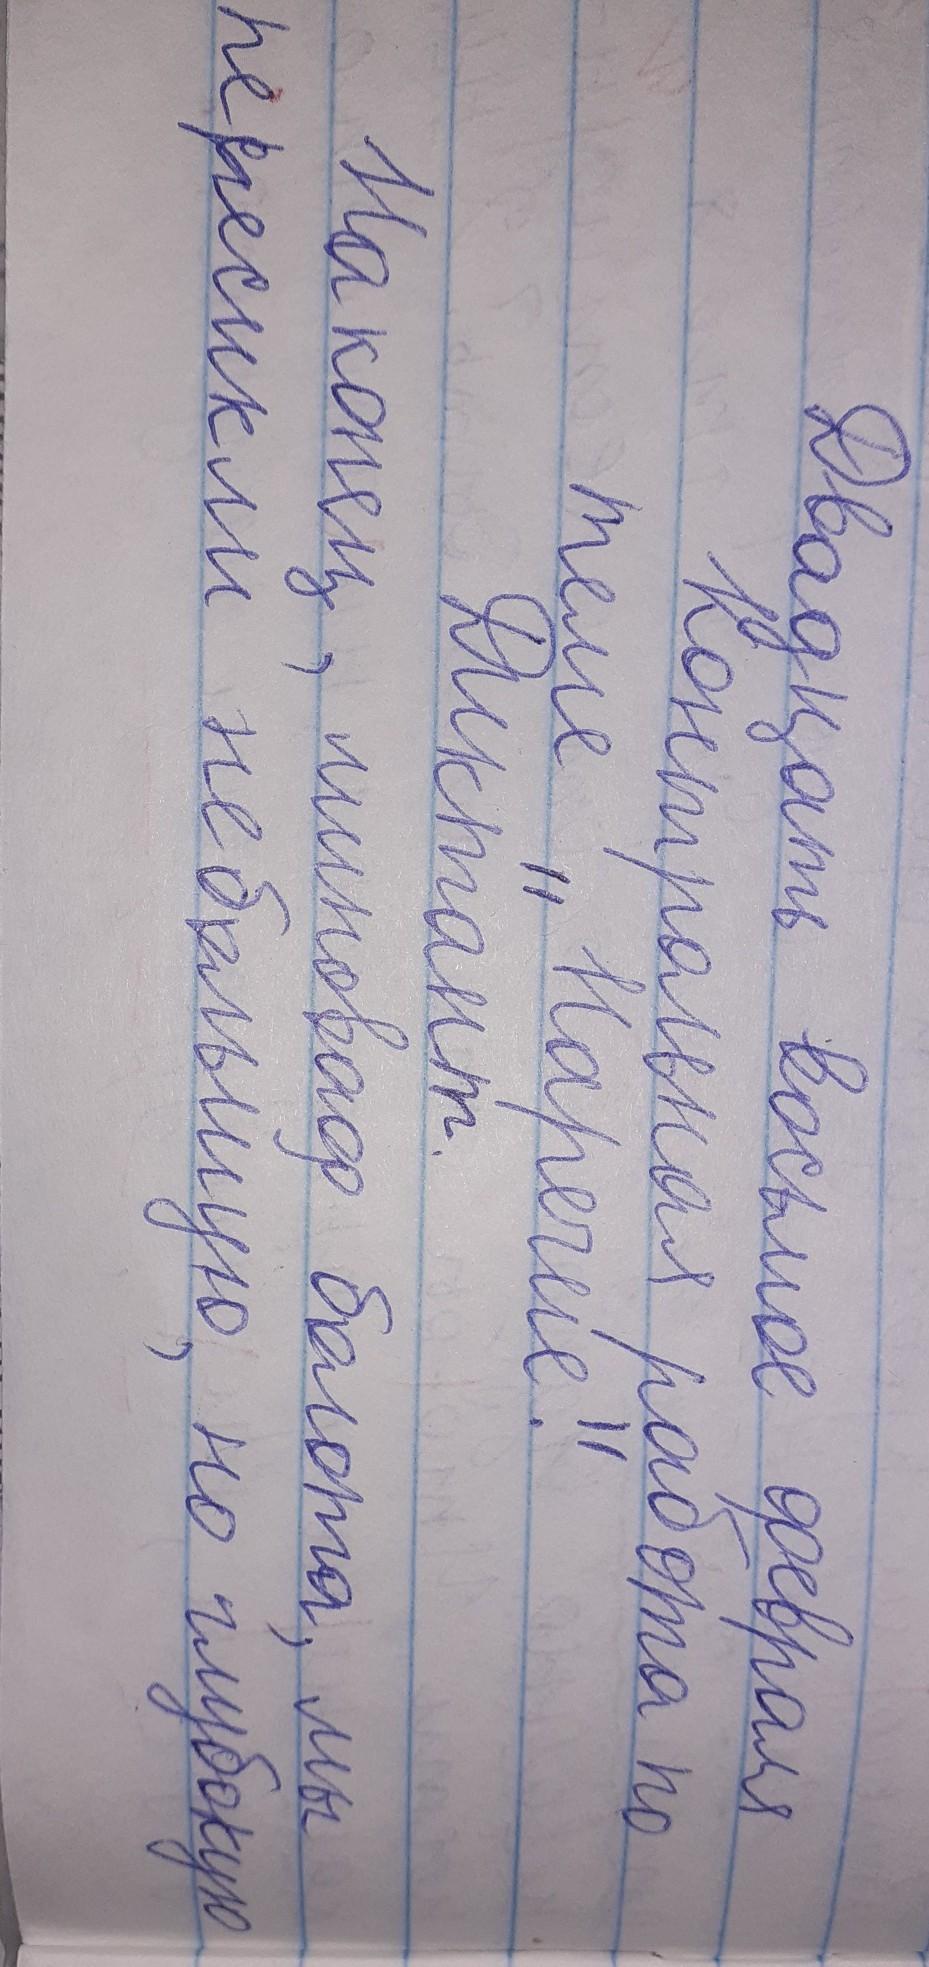 Двадцать восьмое февраля
Контральная работа по
теме "Наречие."
Диктант.
Наконец, миновав балота, мы
пересикли небальшую, но глубокую